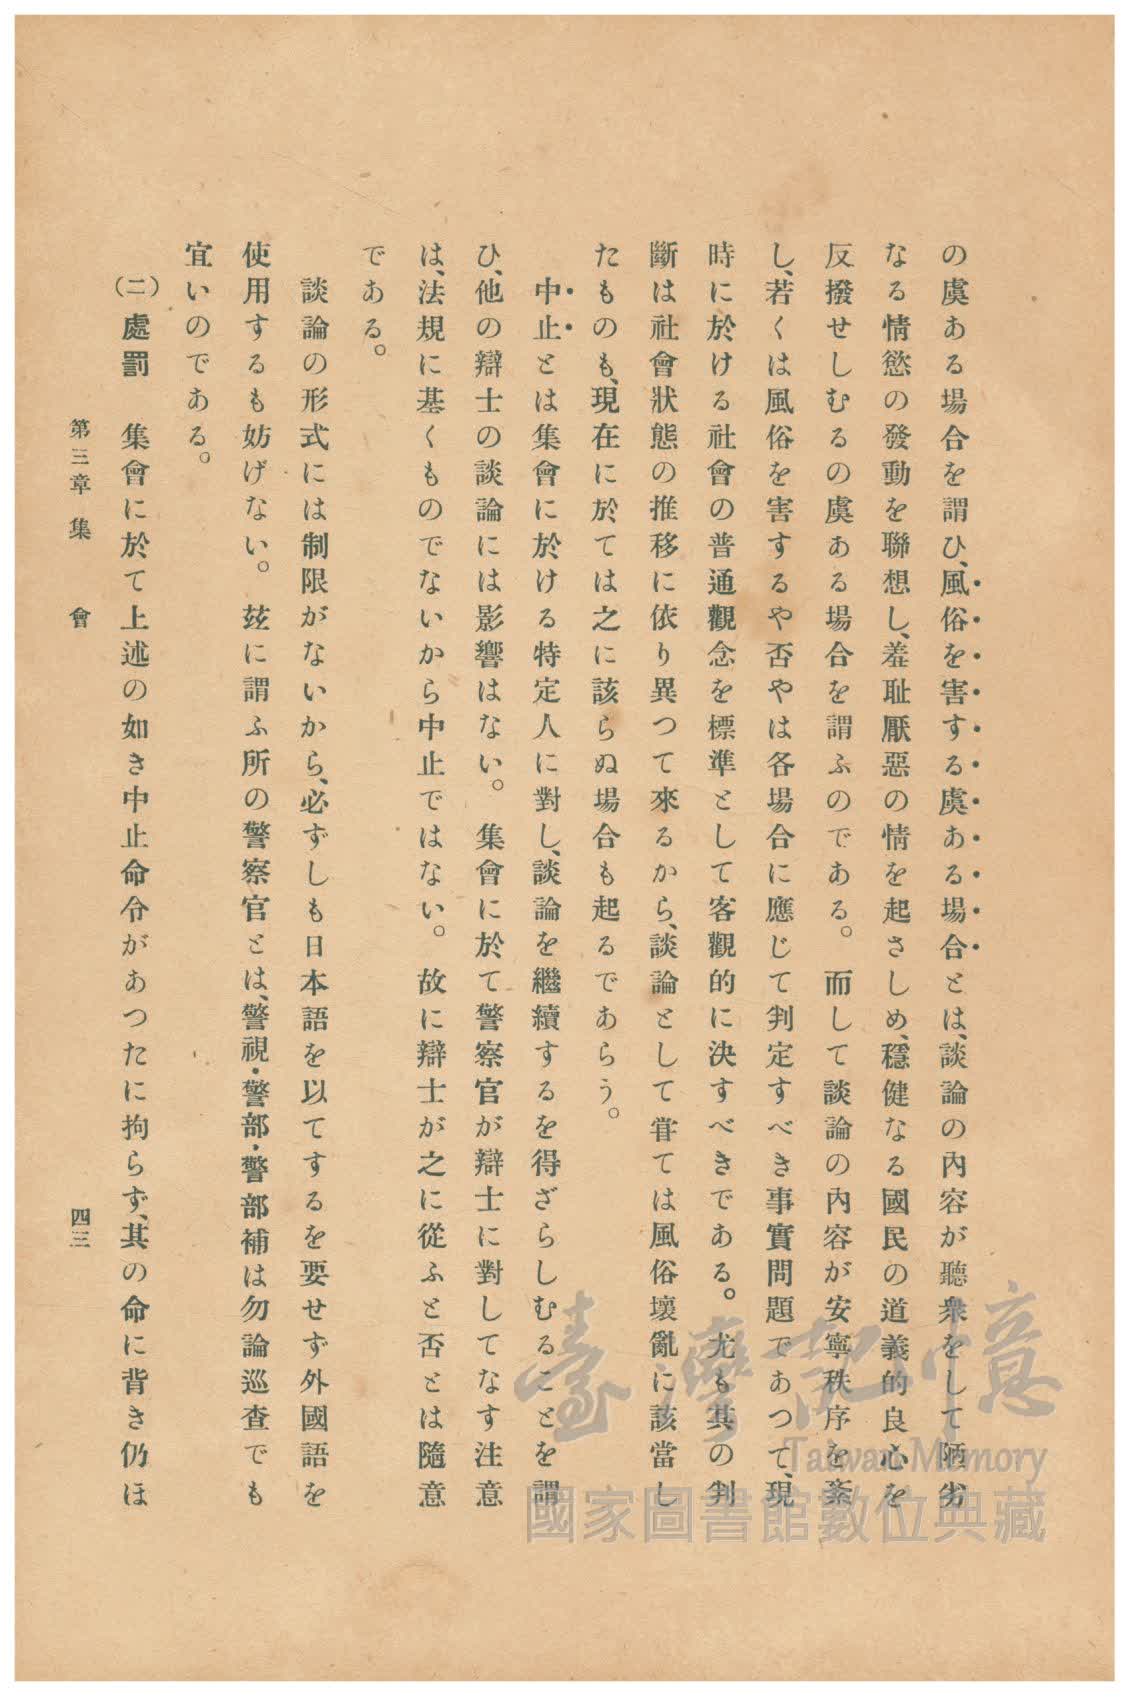 の虞ある場合を謂ひ、風俗を害する虞ある場合とは、談論の內容が聽衆をして陋劣
なる情慾の發動を聯想し、羞耻厭惡の情を起さしめ、穩健なる國民の道義的良心を
反撥せしむるの虞ある場合を謂ふのである。而して談論の內容が安寧秩序を紊
し、若くは風俗を害するや否やは各場合に應じて判定すべき事實問題であつて、現
時に於ける社會の普通觀念を標準として客觀的に決すべきである。尤も其の判
斷は社會狀態の推移に依り異つて來るから、談論として甞ては風俗壞亂に該當し
たものも、現在に於ては之に該らぬ場合も起るであらう。
中止とは集會に於ける特定人に對し、談論を繼續するを得ざらしむることを謂
ひ、他の辯士の談論には影響はない。集會に於て警察官が辯士に對してなす注意
は、法規に基くものでないから中止ではない。故に辯士が之に從ふと否とは隨意
である。
談論の形式には制限がないから、必ずしも日本語を以てするを要せず外國語を
使用するも妨げない。玆に謂ふ所の警察官とは、警視・警部・警部補は勿論巡査でも
宜いのである。
(二)處罰　集會に於て上述の如き中止命令があつたに拘らず、其の命に背き仍ほ
第三章　集會
四三
臺灣記憶
Taiwan Memory
國家圖書館數位典藏